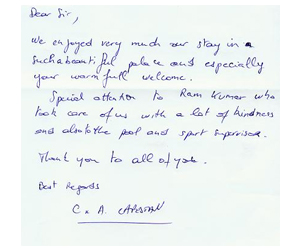 Dear Sir,
We enjoyed very much our stay in a
such a beautiful palace and especially
your warmfull welcome.
Special attention to Ram Kumar who
took care of us with a lot of kindness
and also to the pool and sport supervisor.
Thank you to all of you.
Best Regards
C & A.